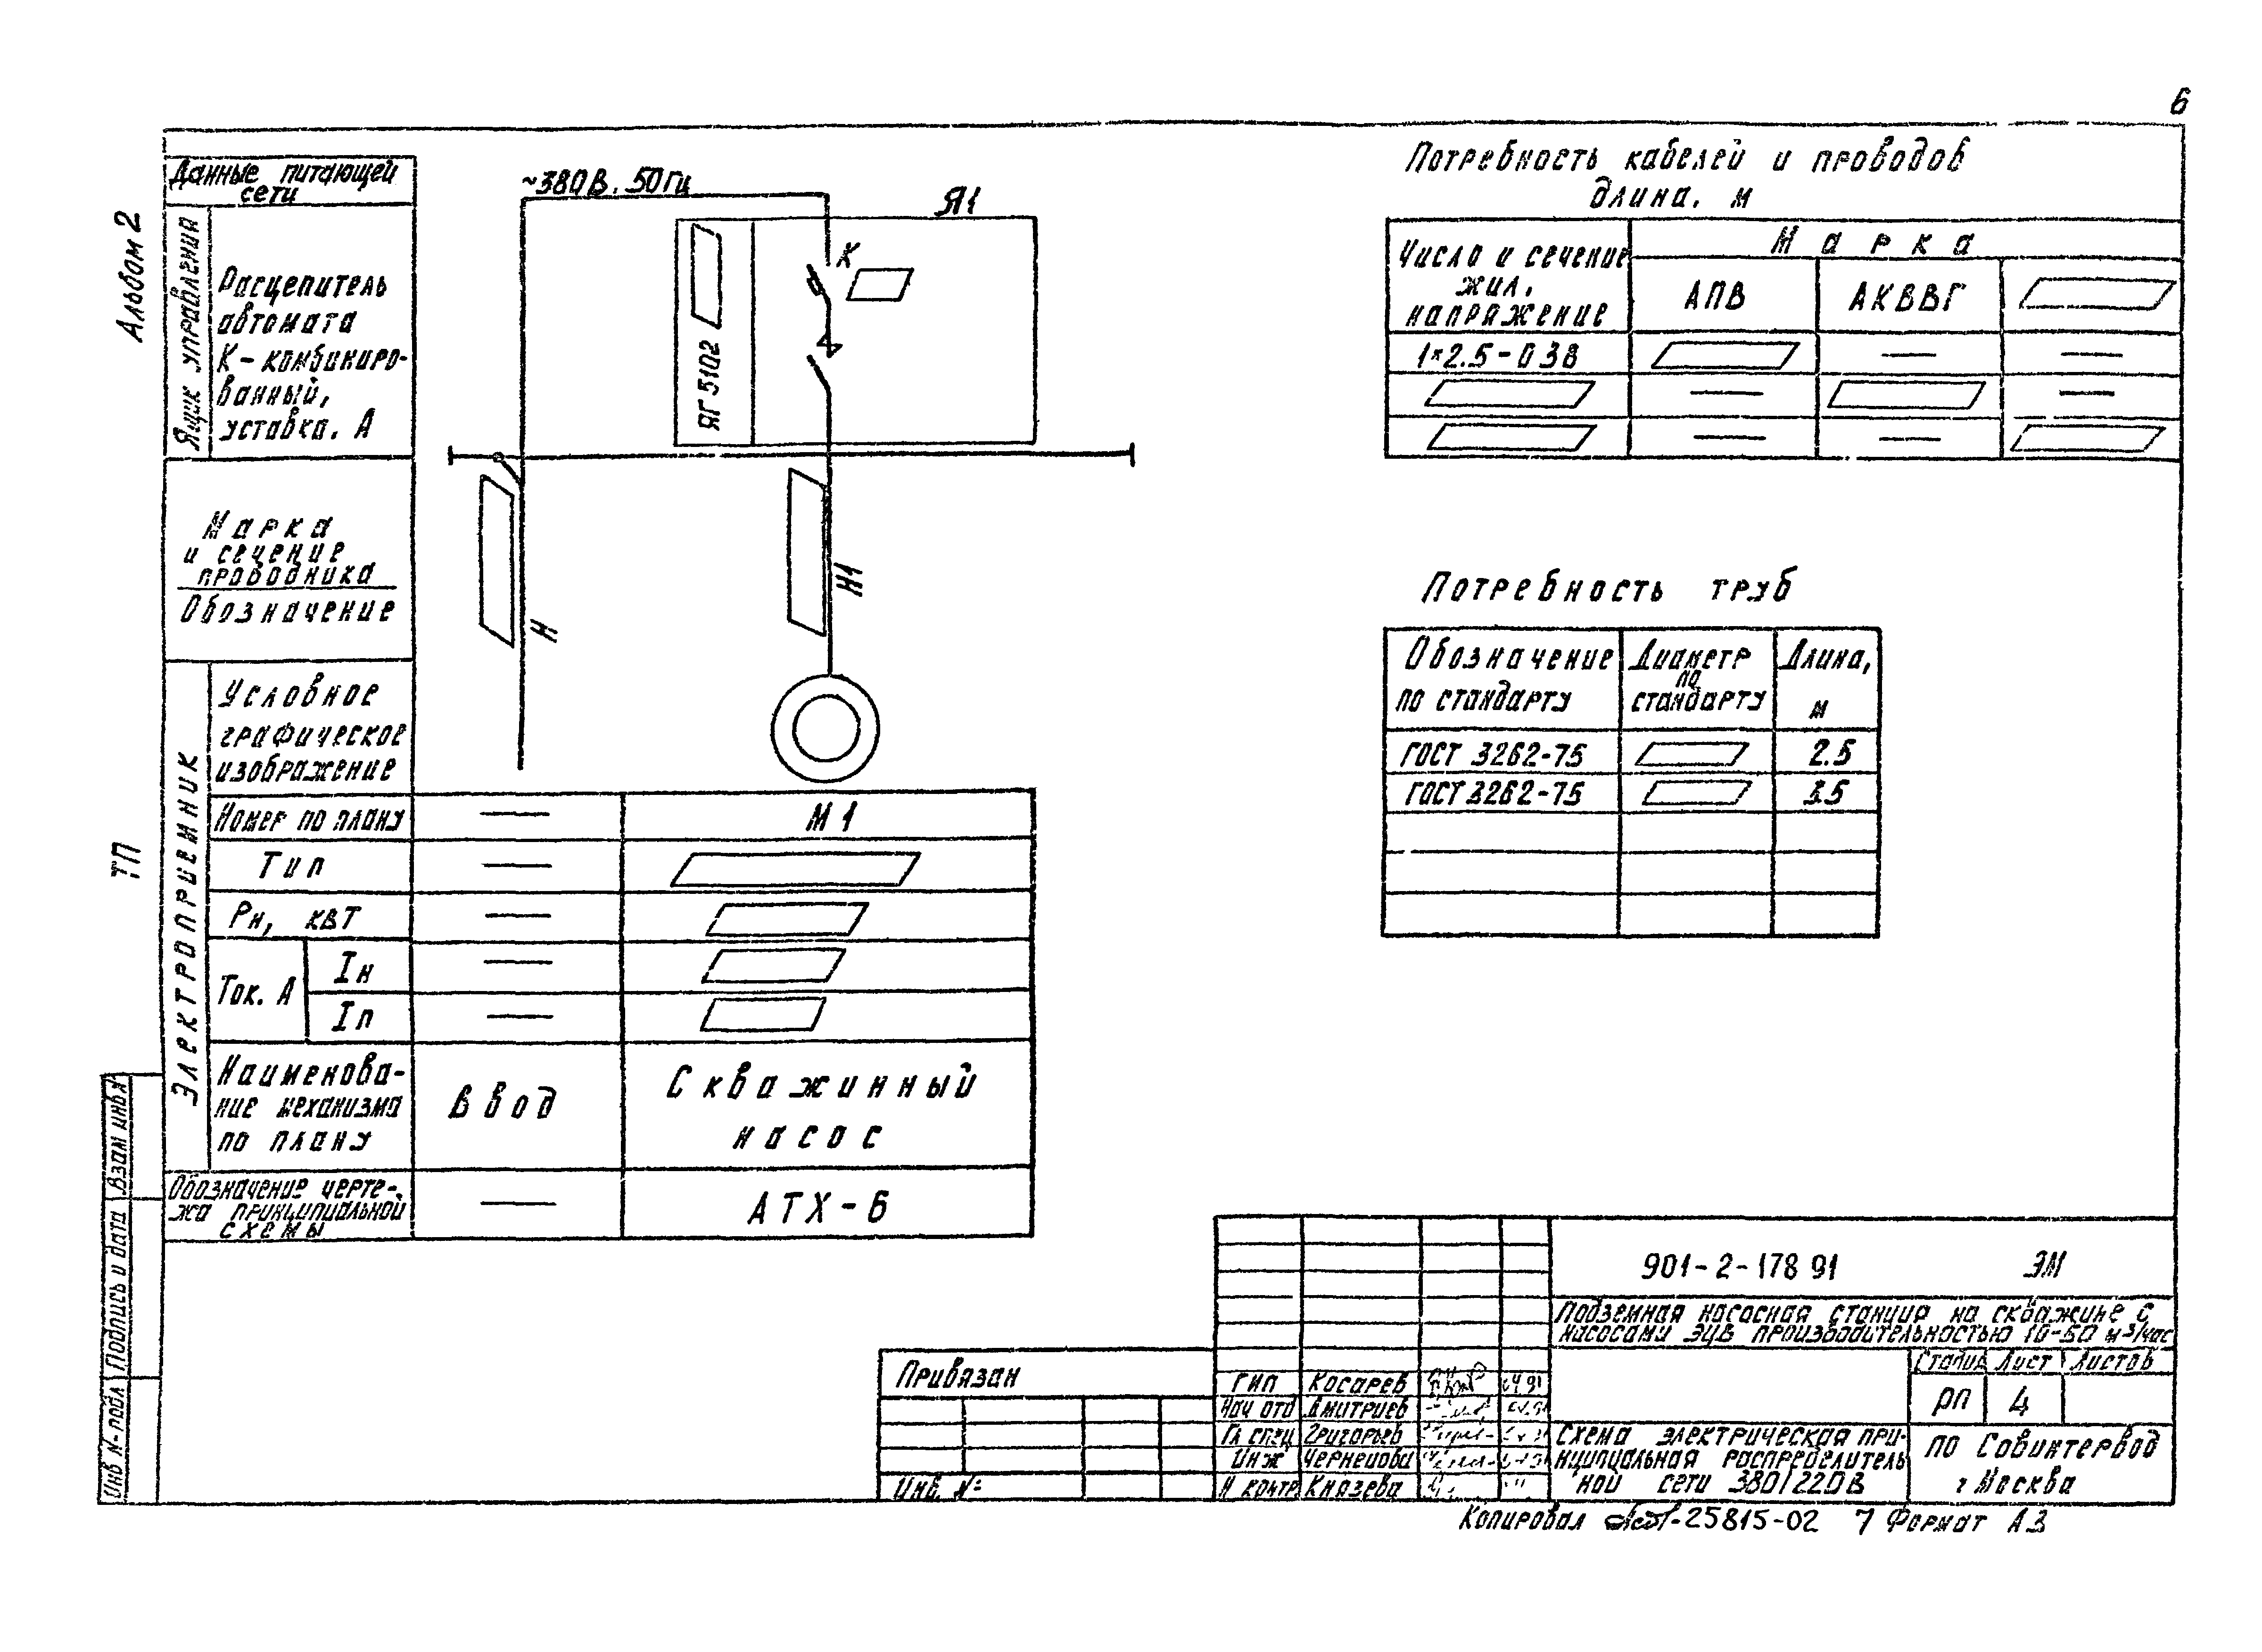 6
Альбом 2
ТП
Данные питающей
сети
Ящик управления
Расцепитель
автомата
К - комбиниро-
ванный,
уставка. А
Марка
и сечение
проводника
Обозначение
Электроприемник
Условное
графическое
изображение
Номер по плану
Тип
Рн, квт
Ток. А
Iн
Iп
Наименова-
ние механизма
по плану
Обозначение черте-
жа принципиальной
схемы
~380В. 50Гц
Я1
ЯГ5102
К
Н
Н1
— М1
—
—
—
—
Ввод
Скважинный
насос
— АТХ-6
Потребность кабелей и проводов
длина. м
Число и сечение
жил.
напряжение
Марка
АПВ АКВВГ
1×2.5-0 38 — —
— —
— —
Потребность труб
Обозначение
по стандарту
Диаметр
по
стандарту
Длина,
м
ГОСТ 3262-75 2.5
ГОСТ 3262-75 3.5
Взам инв №
Подпись и дата
Инв № подл
Привязан
Инв. №
901-2-178 91 ЭМ
Подземная насосная станция на скважине с
насосами ЭЦВ производительностью 10-60 м³/час
Стадия Лист Листов
РП 4
ГИП Косарев 04.91
Нач отд Дмитриев
Гл спец Григорьев
Инж
Н контр Князева
Схема электрическая при-
нципиальная распределитель
ной сети 380/220В
ПО Совинтервод
г Москва
Копировал 25815-02 7 Формат А3